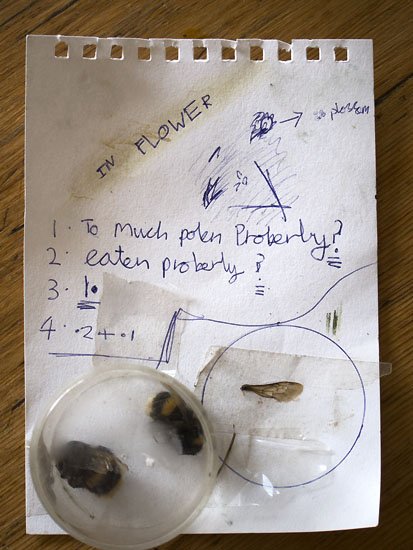 IN FLOWER
1. To much polen Proberbly?
2. eaten proberly?
3. 1.
4. .2 + .1